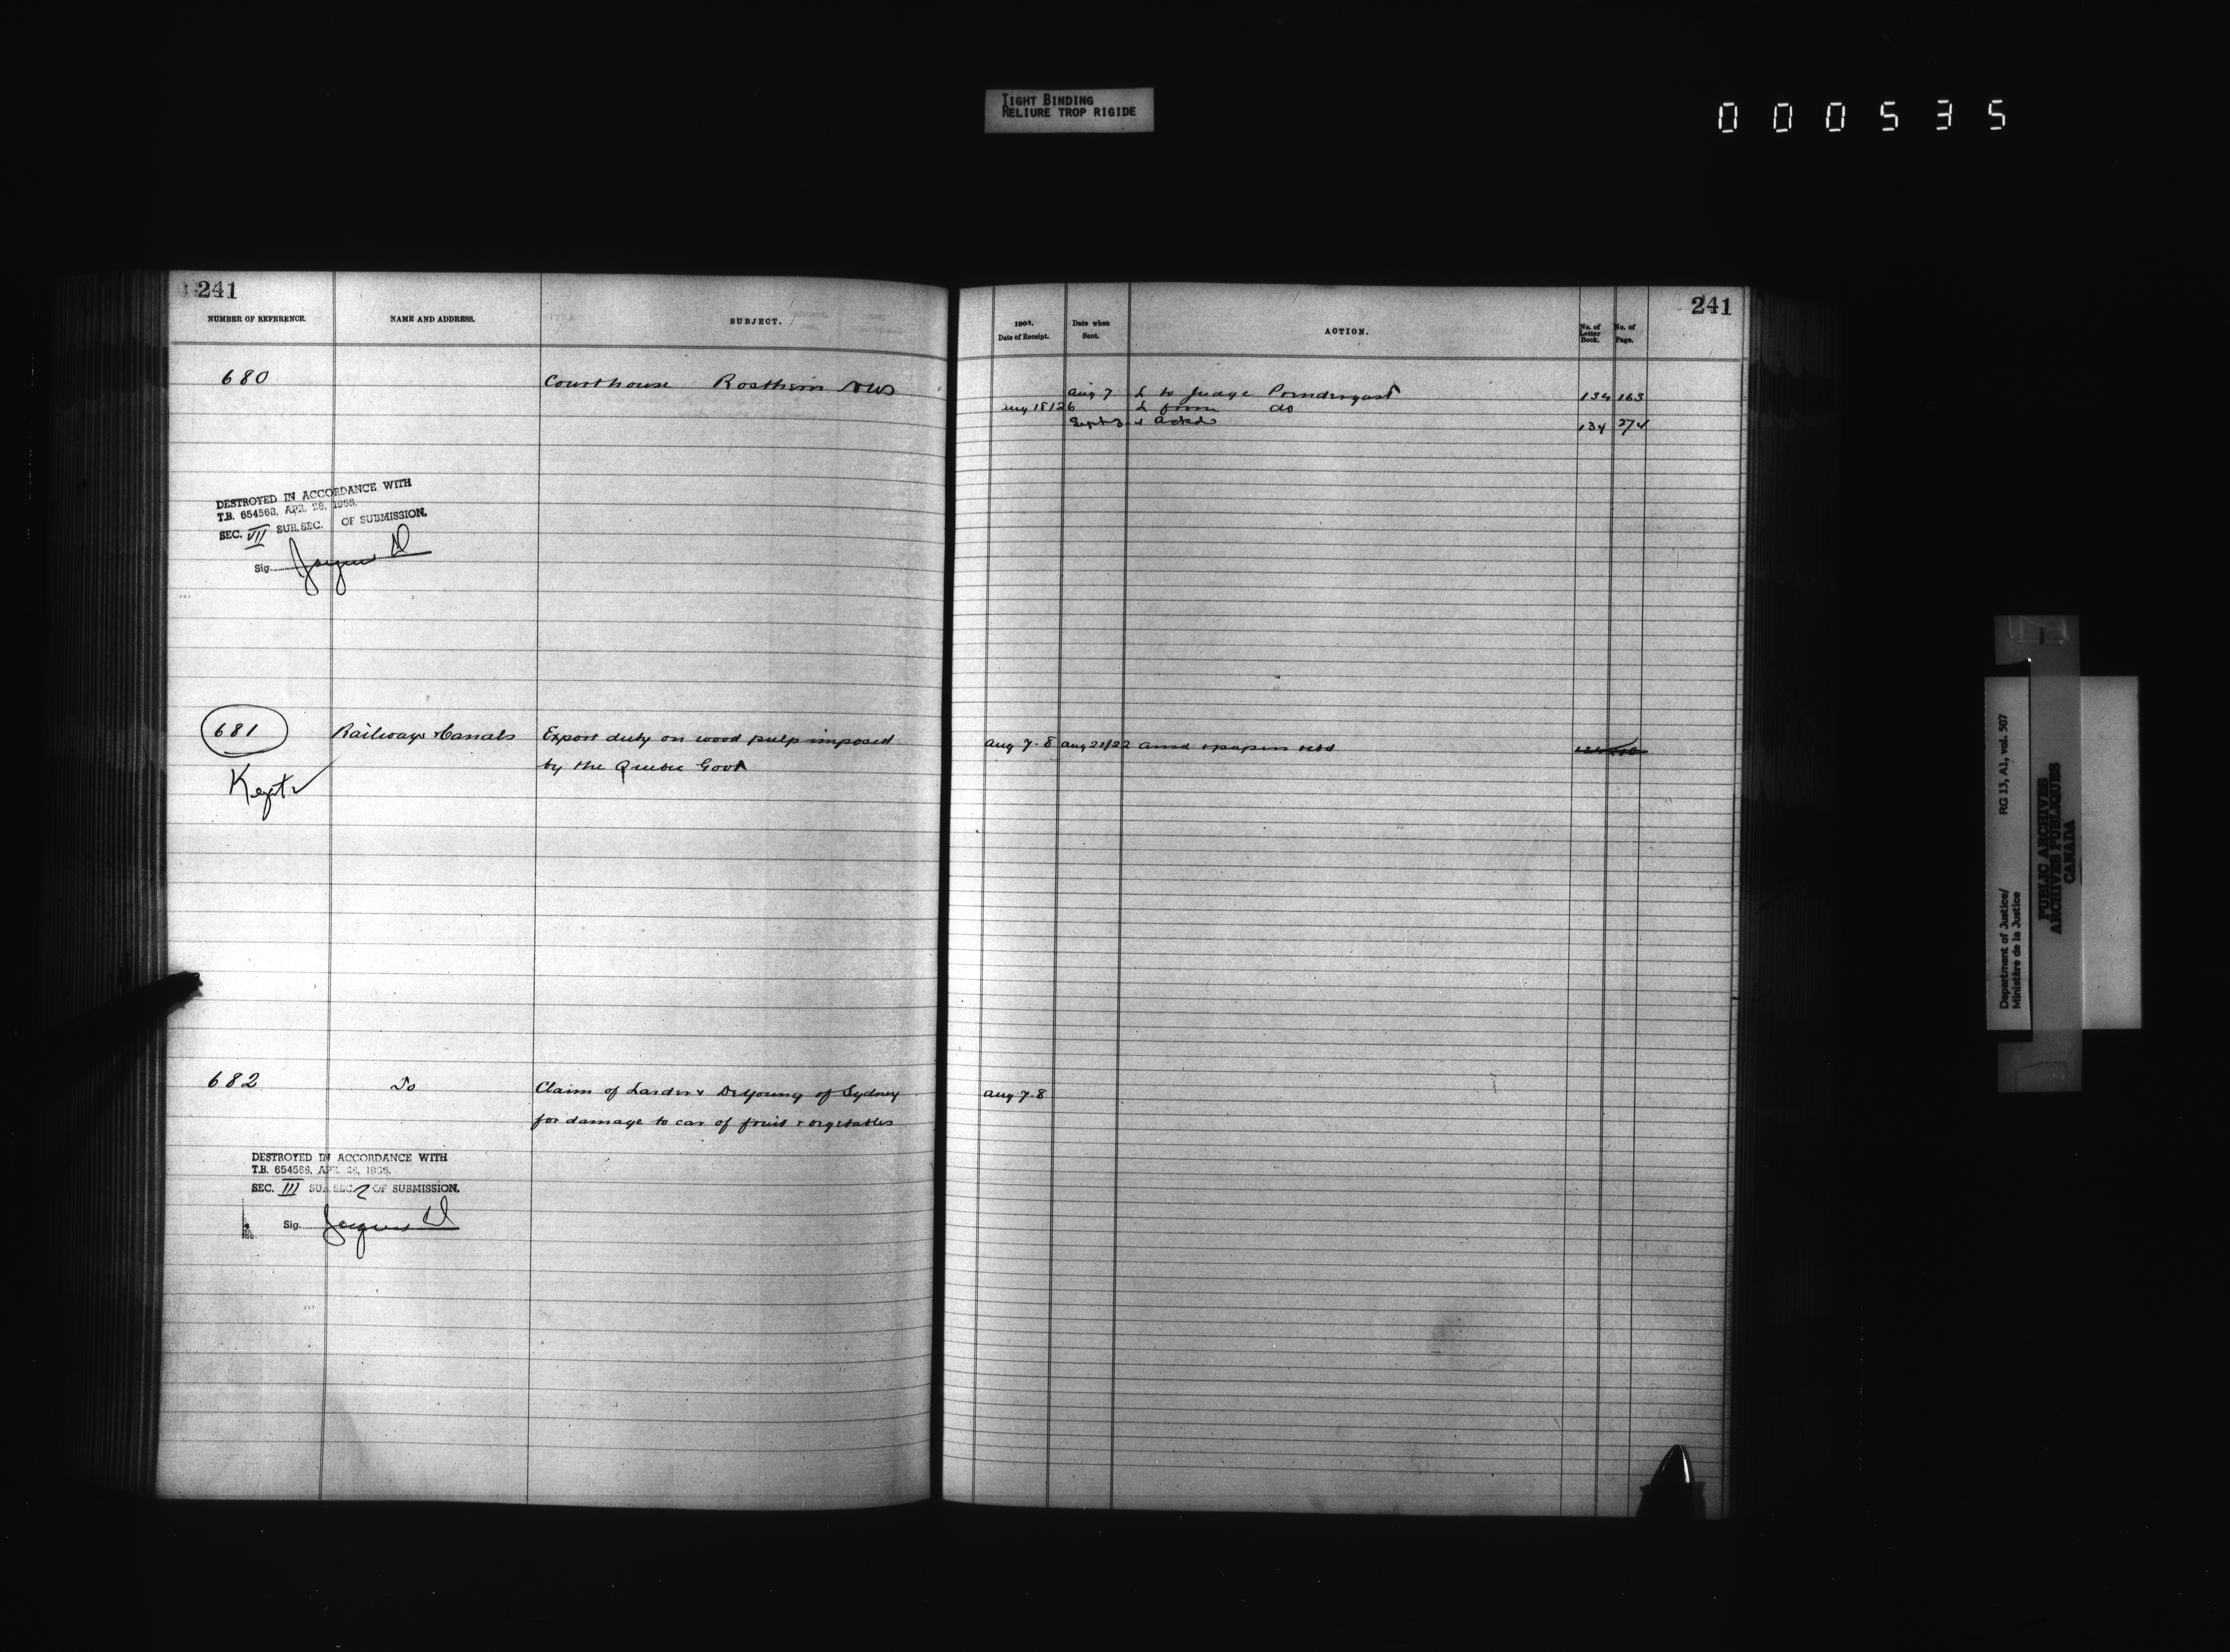 TIGHT BINDING
RELIURE TROP RIGIDE
000535
241
NUMBER OF REFERENCE.
NAME AND ADDRESS.
SUBJECT.
680
Courthouse Rosthern NWS
DESTROYED IN ACCORDANCE WITH
T.B. 654568, APR. 28, 1966.
SEC. VII SUB.SEC. OF SUBMISSION.
Sig.
681 Railways & Canals Export duty on wood pulp imposed
by the Quebec Govt
Kept
682 Do Claim of Larder & DeYoung of Sydney
for damage to car of fruit & vegetables
DESTROYED IN ACCORDANCE WITH
T.B. 654568, APR. 28, 1966.
SEC. III SUB.SEC. 2 OF SUBMISSION.
Sig.
241
1903.
Date of Receipt.
Date when
Sent.
ACTION.
No. of
Letter
Book.
No. of
Page.
Aug 7 L to Judge Prendergast 134 163
Aug 18/26 L from do
Sept 3 " Ackd 134 274
Aug 7-8 Aug 21/22 Ansd & papers retd
Aug 7-8
Department of Justice/
Ministère de la Justice
RG 13, A1, vol. 507
PUBLIC ARCHIVES
ARCHIVES PUBLIQUES
CANADA